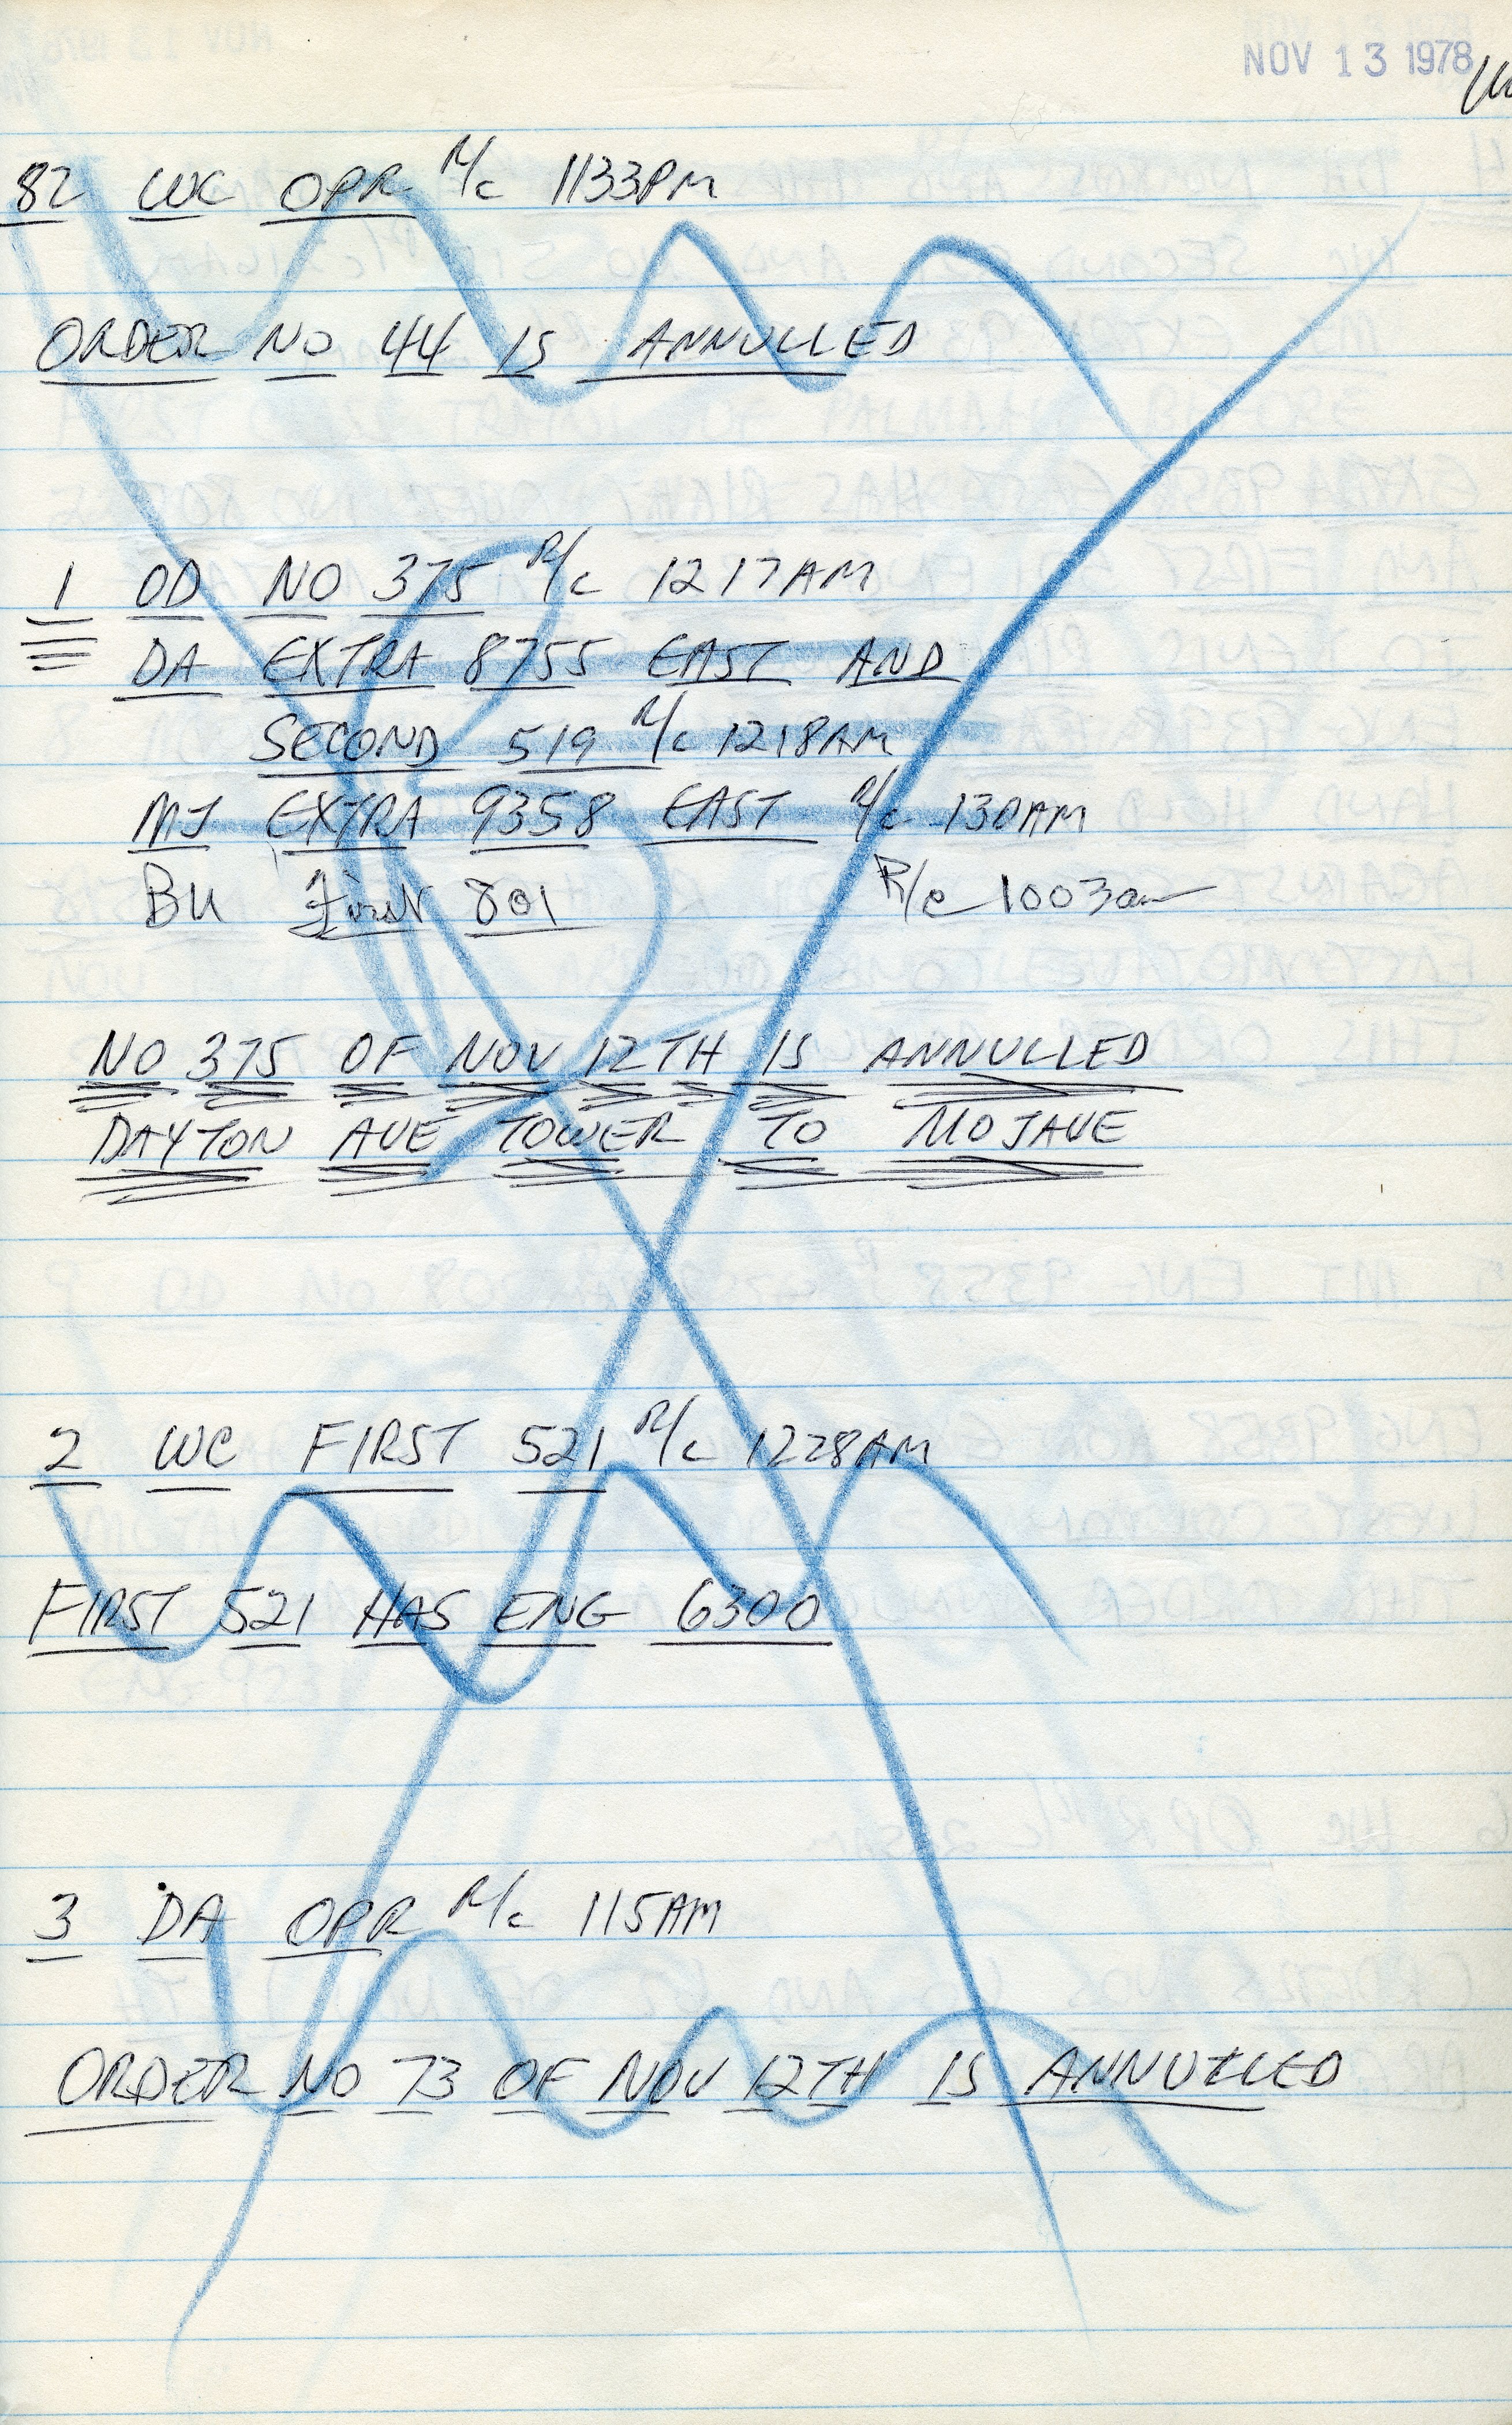 NOV 13 1978
82 WC OPR R/c 1133PM
ORDER NO 44 IS ANNULLED
1 OD NO 375 R/c 1217AM
DA EXTRA 8755 EAST AND
SECOND 519 R/c 1218AM
MJ EXTRA 9358 EAST R/c 130AM
BU First 801 R/c 1003am
NO 375 OF NOV 12TH IS ANNULLED
DAYTON AVE TOWER TO MOJAVE
2 WC FIRST 521 R/c 1228AM
FIRST 521 HAS ENG 6300
3 DA OPR R/c 115AM
ORDER NO 73 OF NOV 12TH IS ANNULLED